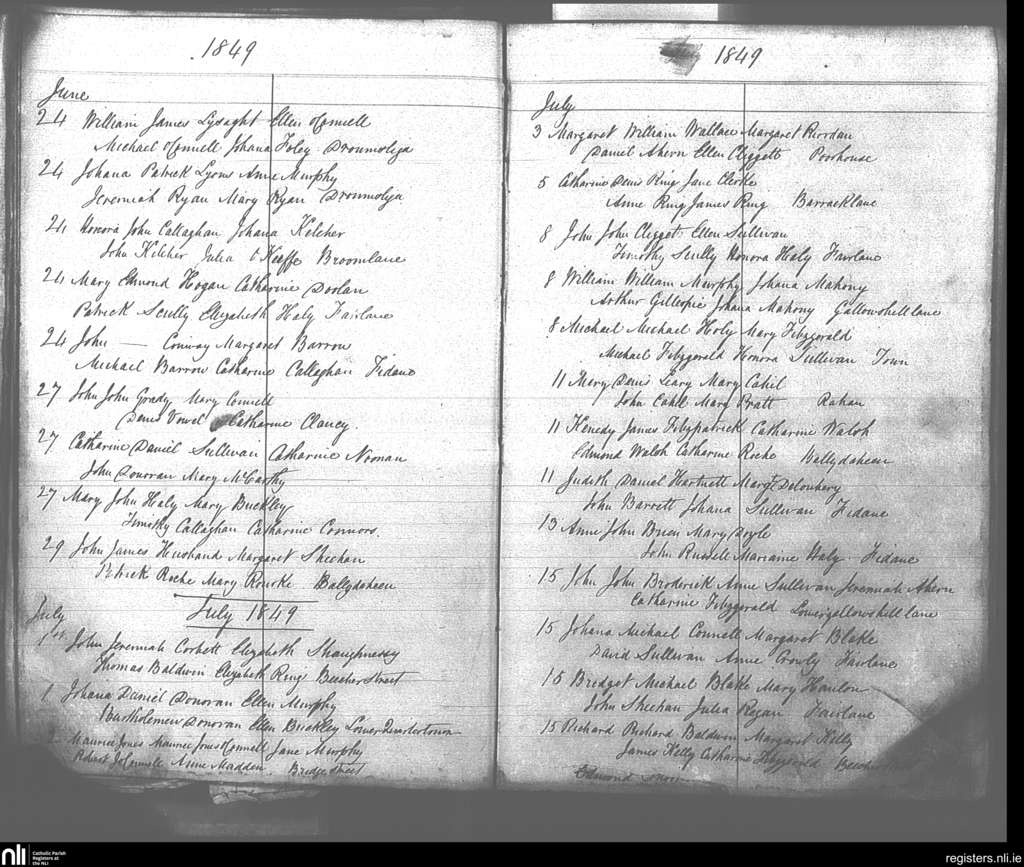 1849
June
24 William James Lysaght Ellen OConnell
Michael OConnell Johana Foley Droumoliga
24 Johana Patrick Lyons Anne Murphy
Jeremiah Ryan Mary Ryan Droumoliga
24 Honora John Callaghan Johana Kelcher
John Kelcher Julia O Keeffe Broomlane
24 Mary Edmond Hogan Catharine Doolan
Patrick Scully Elizabeth Haly Fairlane
24 John — Conway Margaret Barrow
Michael Barrow Catharine Callaghan Fidane
27 John John Grady Mary Connell
Denis Vowel Catharine Clancy.
27 Catharine Daniel Sullivan Catharine Noonan
John Donovan Mary McCarthy
27 Mary John Haly Mary Buckley
Timothy Callaghan Catharine Connors.
29 John James Husband Margaret Sheehan
Patrick Roche Mary Rourke Ballydaheen
July 1849
July
1st John Jeremiah Corbett Elizabeth Shaughnessy
Thomas Baldwin Elizabeth Ring Beecher Street
1 Johana Daniel Donovan Ellen Murphy
Bartholemew Donovan Ellen Buckley Lower Quartertown
Maurice Jones Maurice Jones OConnell Jane Murphy
Robert OConnell Anne Madden Bridge Street
1849
July
3 Margaret William Wallace Margaret Riordan
Daniel Ahern Ellen Cliggett Poorhouse
5 Catharine Denis Ring Jane Clerke
Anne Ring James Ring Barracklane
8 John John Cligget Ellen Sullivan
Timothy Scully Honora Haly Fairlane
8 William William Murphy Johana Mahony
Arthur Gillespie Johana Mahony Gallowshill lane
8 Michael Michael Holy Mary Fitzgerald
Michael Fitzgerald Honora Sullivan Town
11 Mary Denis Leary Mary Cahil
John Cahil Mary Pratt Rahan
11 Kenedy James Fitzpatrick Catharine Walsh
Edmond Walsh Catharine Roche Ballydaheen
11 Judith Daniel Hartnett Margt Delouhery
John Barrett Johana Sullivan Fidane
13 Anne John Brien Mary Doyle
John Russell Marianne Haly Fidane
15 John John Broderick Anne Sullivan Jeremiah Ahern
Catharine Fitzgerald Lowergallowshill lane
15 Johana Michael Connell Margaret Blake
David Sullivan Anne Crowly Fairlane
15 Bridget Michael Blake Mary Hanlon
John Sheehan Julia Regan Fairlane
15 Richard Richard Baldwin Margaret Kelly
James Kelly Catharine Fitzgerald
Edmond
nli Catholic Parish
Registers at
the NLI
registers.nli.ie